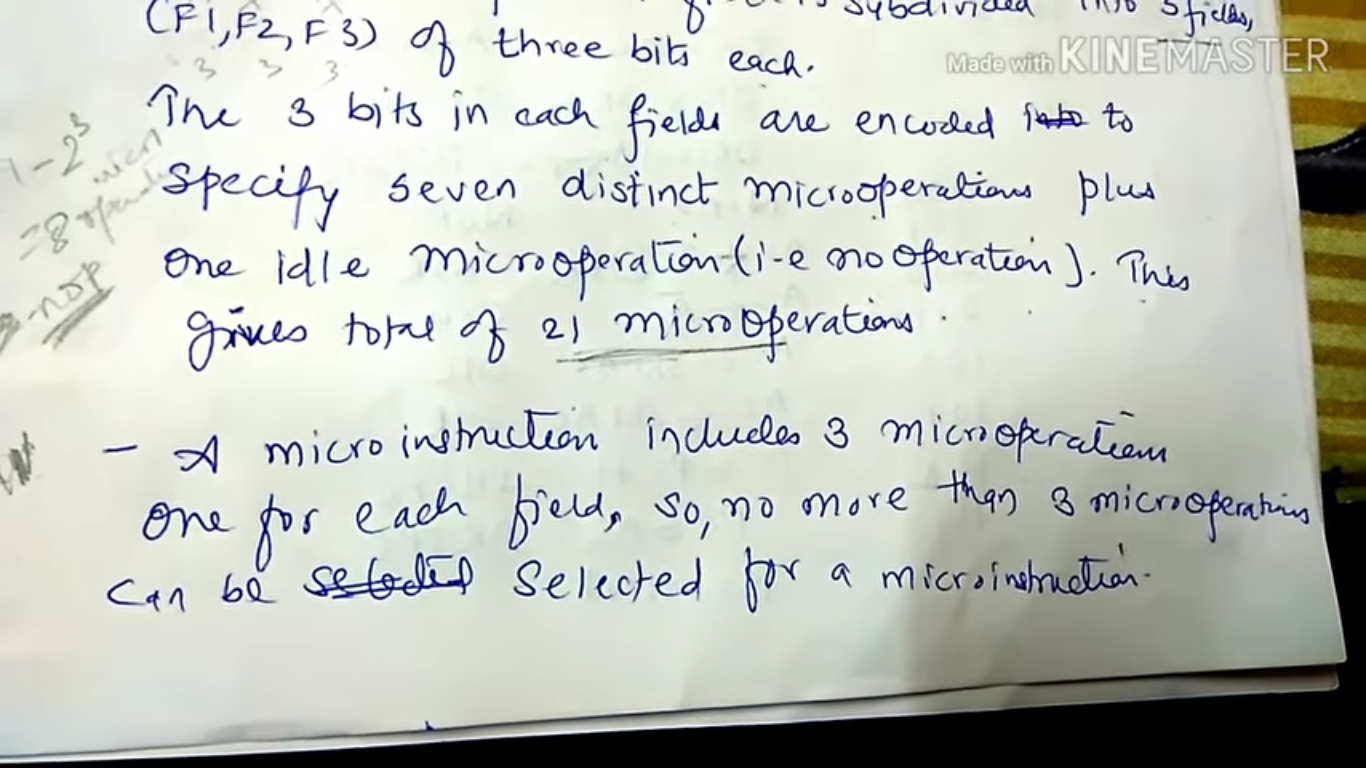 subdivided into 3 fields,
(F1, F2, F3) of three bits each.
3 3 3
Made with KINEMASTER
The 3 bits in each fields are encoded into to
specify seven distinct microoperations plus
one idle microoperation (i-e no operation). This
gives total of 21 microoperations.
2³
=8
nop
- A microinstruction includes 3 microoperations
one for each field, so, no more than 3 microoperations
can be selected for a microinstruction.